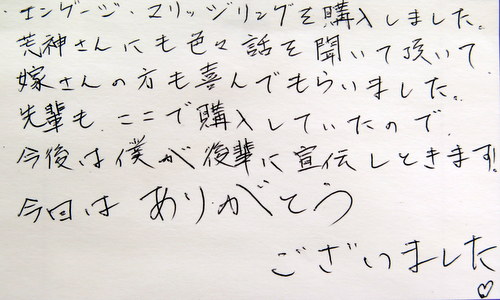 ・エンゲージ・マリッジリングを購入しました。
荒神さんにも色々話を聞いて頂いて
嫁さんの方も喜んでもらいました。
先輩も、ここで購入していたので、
今後は僕が後輩に宣伝しときます!
今回は ありがとう
ございました
♡